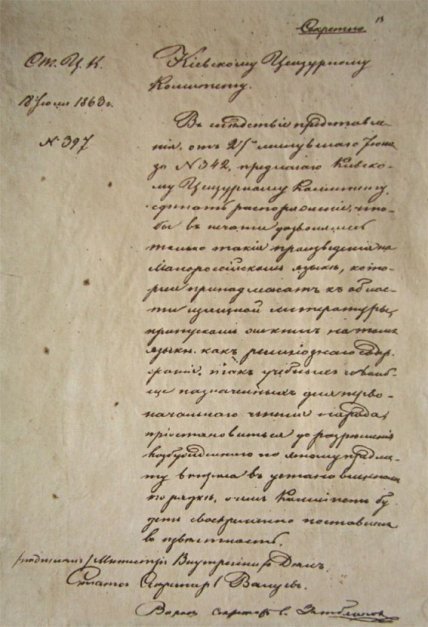 Секретно
Кіевскому Цензурному
Комитету.
От. Ц. К.
18 Іюля 1863 г.
№ 397
Въ слѣдствіе представле-
нія, отъ 27го минувшаго Іюня
за № 342, предлагаю Кіевско-
му Цензурному Комитету,
сдѣлать распоряженіе, что-
бы въ печати дозволялись
только такія произведенія на
Малороссійскомъ языкѣ, кото-
рыя принадлежатъ къ облас-
ти изящной литературы,
пропускомъ же книгъ на томъ
языкѣ какъ религіознаго содер-
жанія, такъ учебныхъ и вооб-
ще назначаемыхъ для перво-
начальнаго чтенія народа,
пріостановиться до разрѣшенія
возбужденнаго по этому предме-
ту вопроса въ установленномъ
порядкѣ, о чемъ Комитетъ бу-
детъ своевременно поставленъ
въ извѣстность.
подписалъ Министръ Внутреннихъ Дѣлъ,
Статсъ Секретарь Валуевъ.
Вѣрно